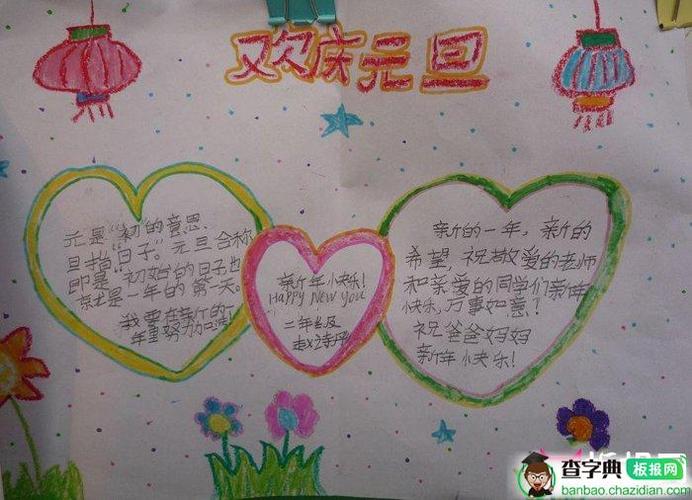 欢庆元旦
元是“初”的意思.
旦指“日子”。元旦合称
即是“初始的日子也
就是一年的第一天。
我要在新的一
年里努力加油!
新年快乐!
HAPPY New You
二年级
赵
新的一年，新的
希望，祝敬爱的老师
和亲爱的同学们新年
快乐，万事如意！
祝爸爸妈妈
新年快乐！
查字典 板报网
banbao.chazidian.com